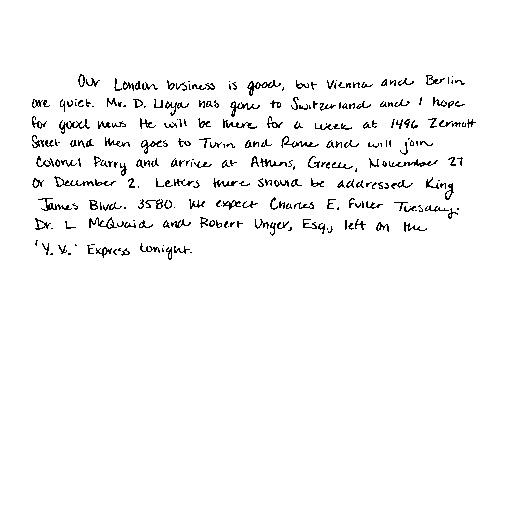 Our London business is good, but Vienna and Berlin
are quiet. Mr. D. Lloyd has gone to Switzerland and I hope
for good news He will be there for a week at 1496 Zermott
Street and then goes to Turin and Rome and will join
Colonel Parry and arrive at Athens, Greece, November 27
or December 2. Letters there should be addressed King
James Blvd. 3580. We expect Charles E. Fuller Tuesday.
Dr. L McQuaid and Robert Unger, Esq., left on the
'Y. X.' Express tonight.